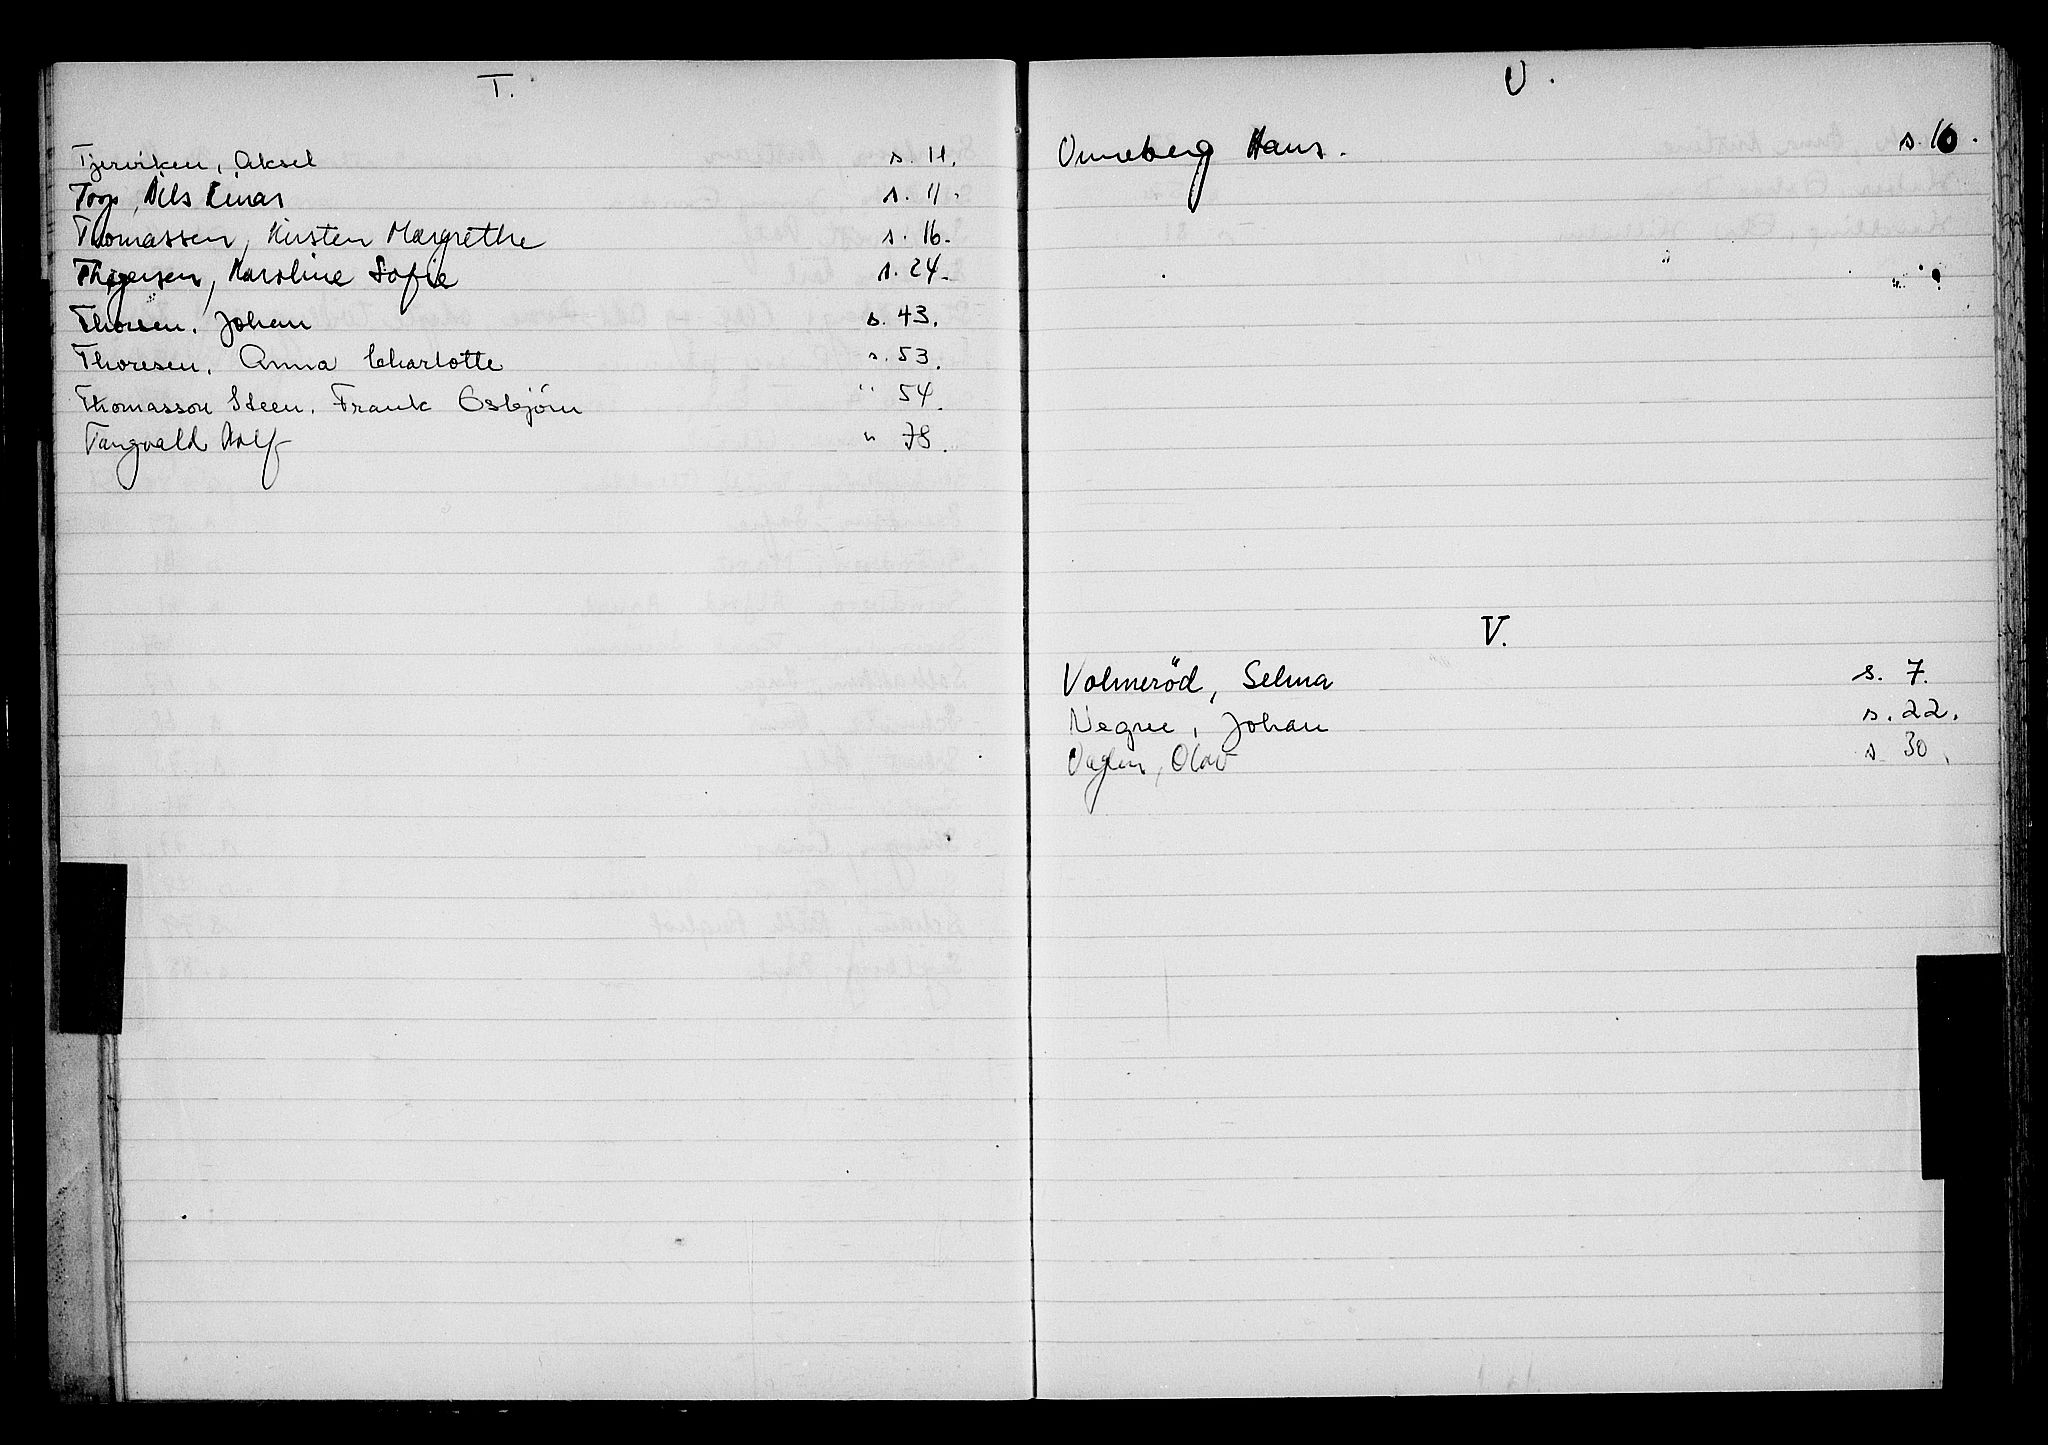 T.
Tjerviken, Aksel s. 11.
Torp, Nils Einar s. 11.
Thomassen, Kirsten Margrethe s. 16.
Thøgersen, Karoline Sofie s. 24.
Thorsen, Johan s. 43.
Thoresen, Anna Charlotte s. 53.
Thomasson Steen, Frank Esbjörn " 54.
Tangvald Rolf " 78.
U.
Unneberg Hans. s. 16.
V.
Volmeröd, Selma s. 7.
Vegne, Johan s. 22.
Vaglen, Olav s 30.